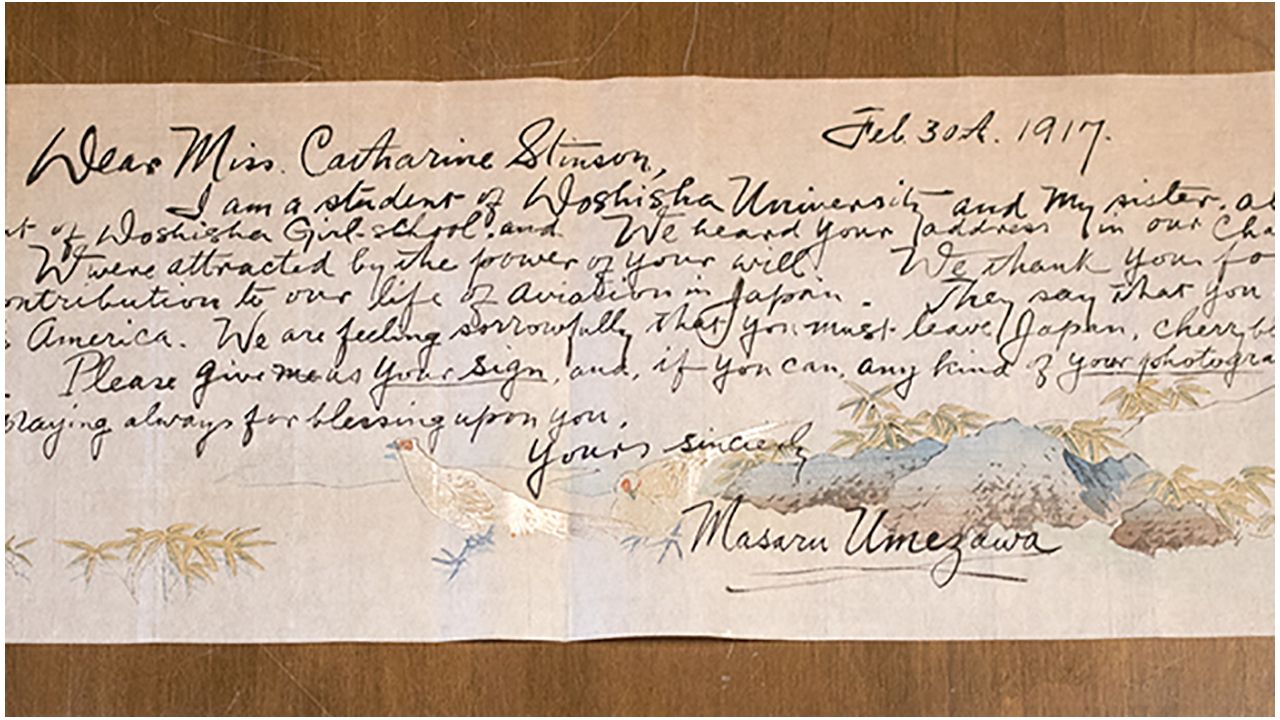 Dear Miss. Catharine Stinson,
Feb. 30th. 1917.
I am a student of Doshisha University and my sister. a
nt of Doshisha Girl-school. and We heard your address in our Cha
W were attracted by the power of your will. We thank your fo
ontribution to our life of aviation in Japan. They say that you
America. We are feeling sorrowfully that you must leave Japan, cherry
Please give me us your sign, and, if you can, any kind of your photogra
raying always for blessing upon you.
Yours sincerly
Masaru Umezawa